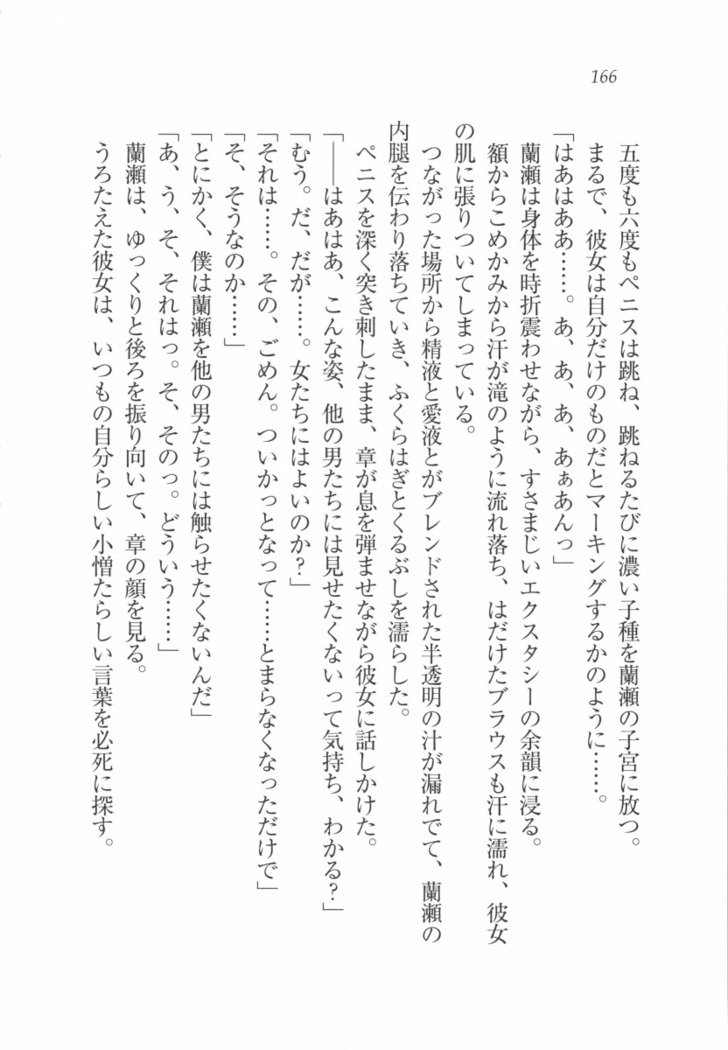 166
五度も六度もペニスは跳ね、跳ねるたびに濃い子種を蘭瀬の子宮に放つ。
まるで、彼女は自分だけのものだとマーキングするかのように……。
「はあはああ……。あ、あ、あ、あぁあんっ」
蘭瀬は身体を時折震わせながら、すさまじいエクスタシーの余韻に浸る。
額からこめかみから汗が滝のように流れ落ち、はだけたブラウスも汗に濡れ、彼女
の肌に張りついてしまっている。
つながった場所から精液と愛液とがブレンドされた半透明の汁が漏れでて、蘭瀬の
内腿を伝わり落ちていき、ふくらはぎとくるぶしを濡らした。
ペニスを深く突き刺したまま、章が息を弾ませながら彼女に話しかけた。
「――はあはあ、こんな姿、他の男たちには見せたくないって気持ち、わかる?」
「むう。だ、だが……。女たちにはよいのか?」
「それは……。その、ごめん。ついかっとなって……とまらなくなっただけで」
「そ、そうなのか……」
「とにかく、僕は蘭瀬を他の男たちには触らせたくないんだ」
「あ、う、そ、それはっ。そ、そのっ。どういう……」
蘭瀬は、ゆっくりと後ろを振り向いて、章の顔を見る。
うろたえた彼女は、いつもの自分らしい小憎たらしい言葉を必死に探す。